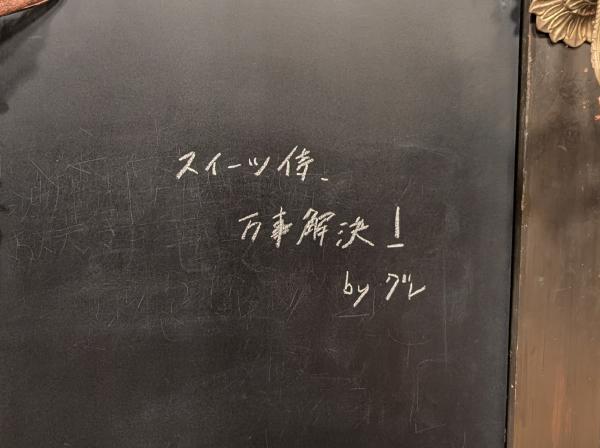 スイーツ侍、
万事解決!
by グレ